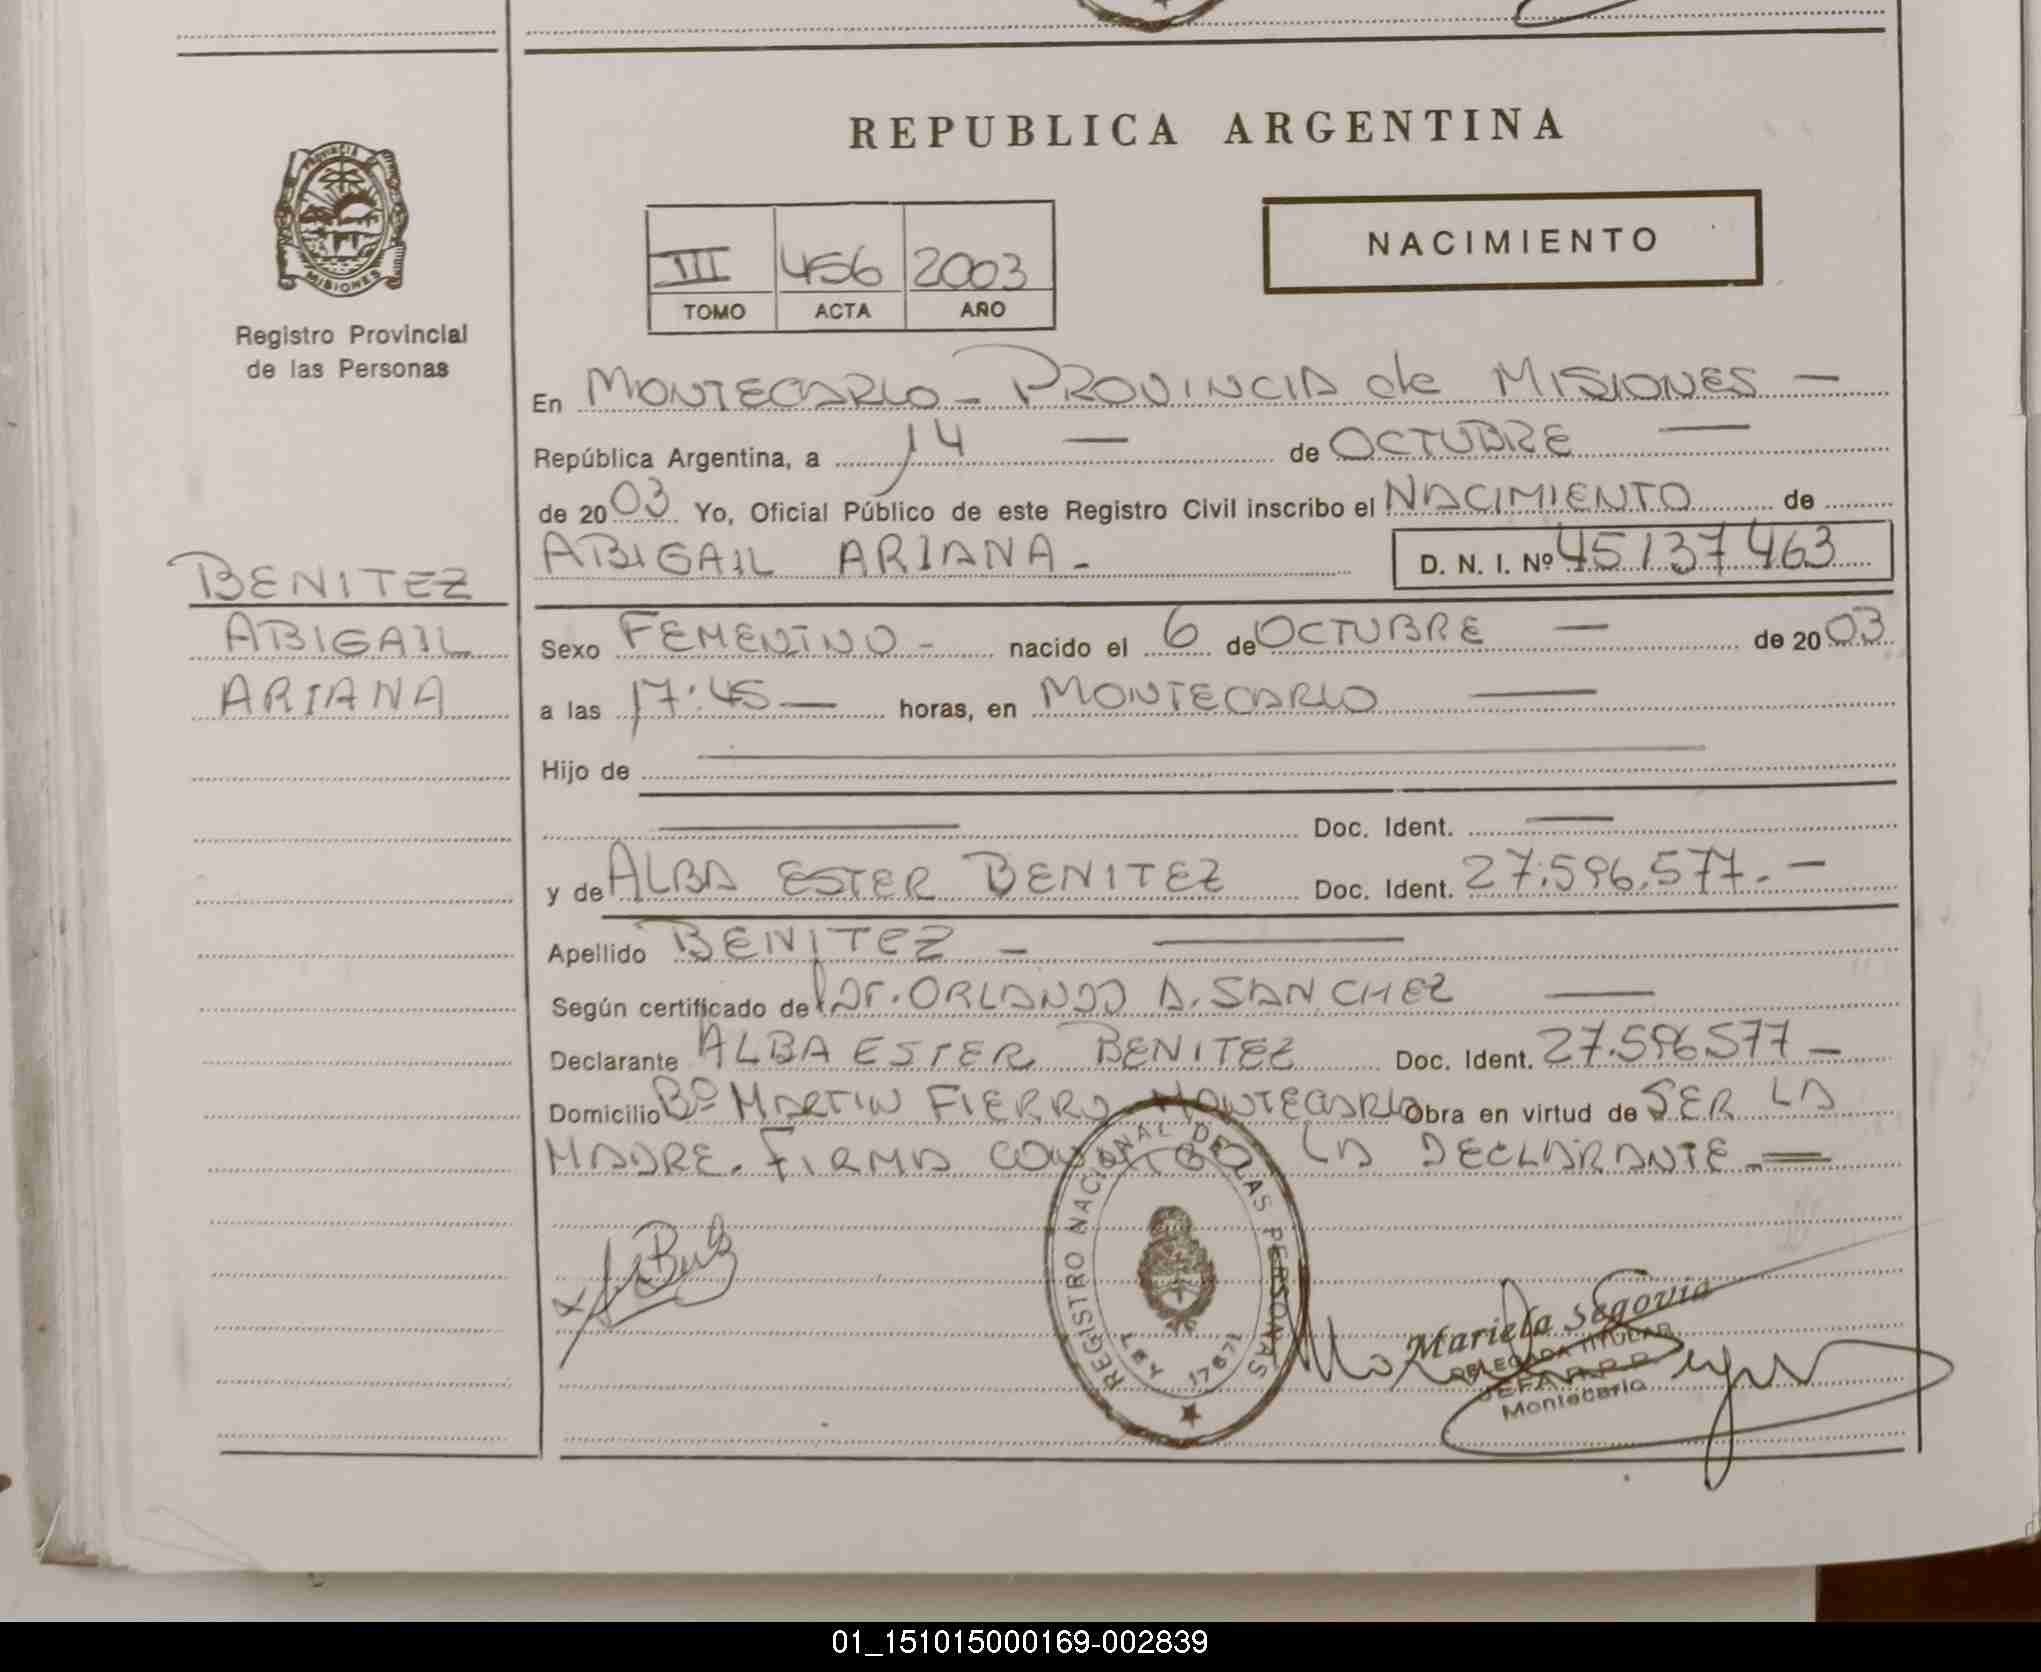 REPUBLICA ARGENTINA
PROVINCIA
MISIONES
Registro Provincial
de las Personas
NACIMIENTO
III 456 2003
TOMO ACTA AÑO
En MONTECARLO - PROVINCIA de MISIONES -
República Argentina, a 14 - de OCTUBRE -
de 2003 Yo, Oficial Público de este Registro Civil inscribo el NACIMIENTO de
ABIGAIL ARIANA - D. N. I. Nº 45137463
BENITEZ
ABIGAIL
ARIANA
Sexo FEMENINO - nacido el 6 de OCTUBRE - de 2003
a las 17:45 - horas, en MONTECARLO -
Hijo de
Doc. Ident. -
y de ALBA ESTER BENITEZ Doc. Ident. 27.596.577. -
Apellido BENITEZ -
Según certificado del Dr. ORLANDO A. SANCHEZ -
Declarante ALBA ESTER BENITEZ Doc. Ident. 27.596577 -
Domicilio Bº MARTIN FIERRO MONTECARLO Obra en virtud de SER LA
MADRE. FIRMA CONMIGO LA DECLARANTE. -
REGISTRO NACIONAL DE LAS PERSONAS
LEY 17671
Mariela Segovia
DELEGADA TITULAR
JEFA R.P.P.
Montecarlo
01_151015000169-002839